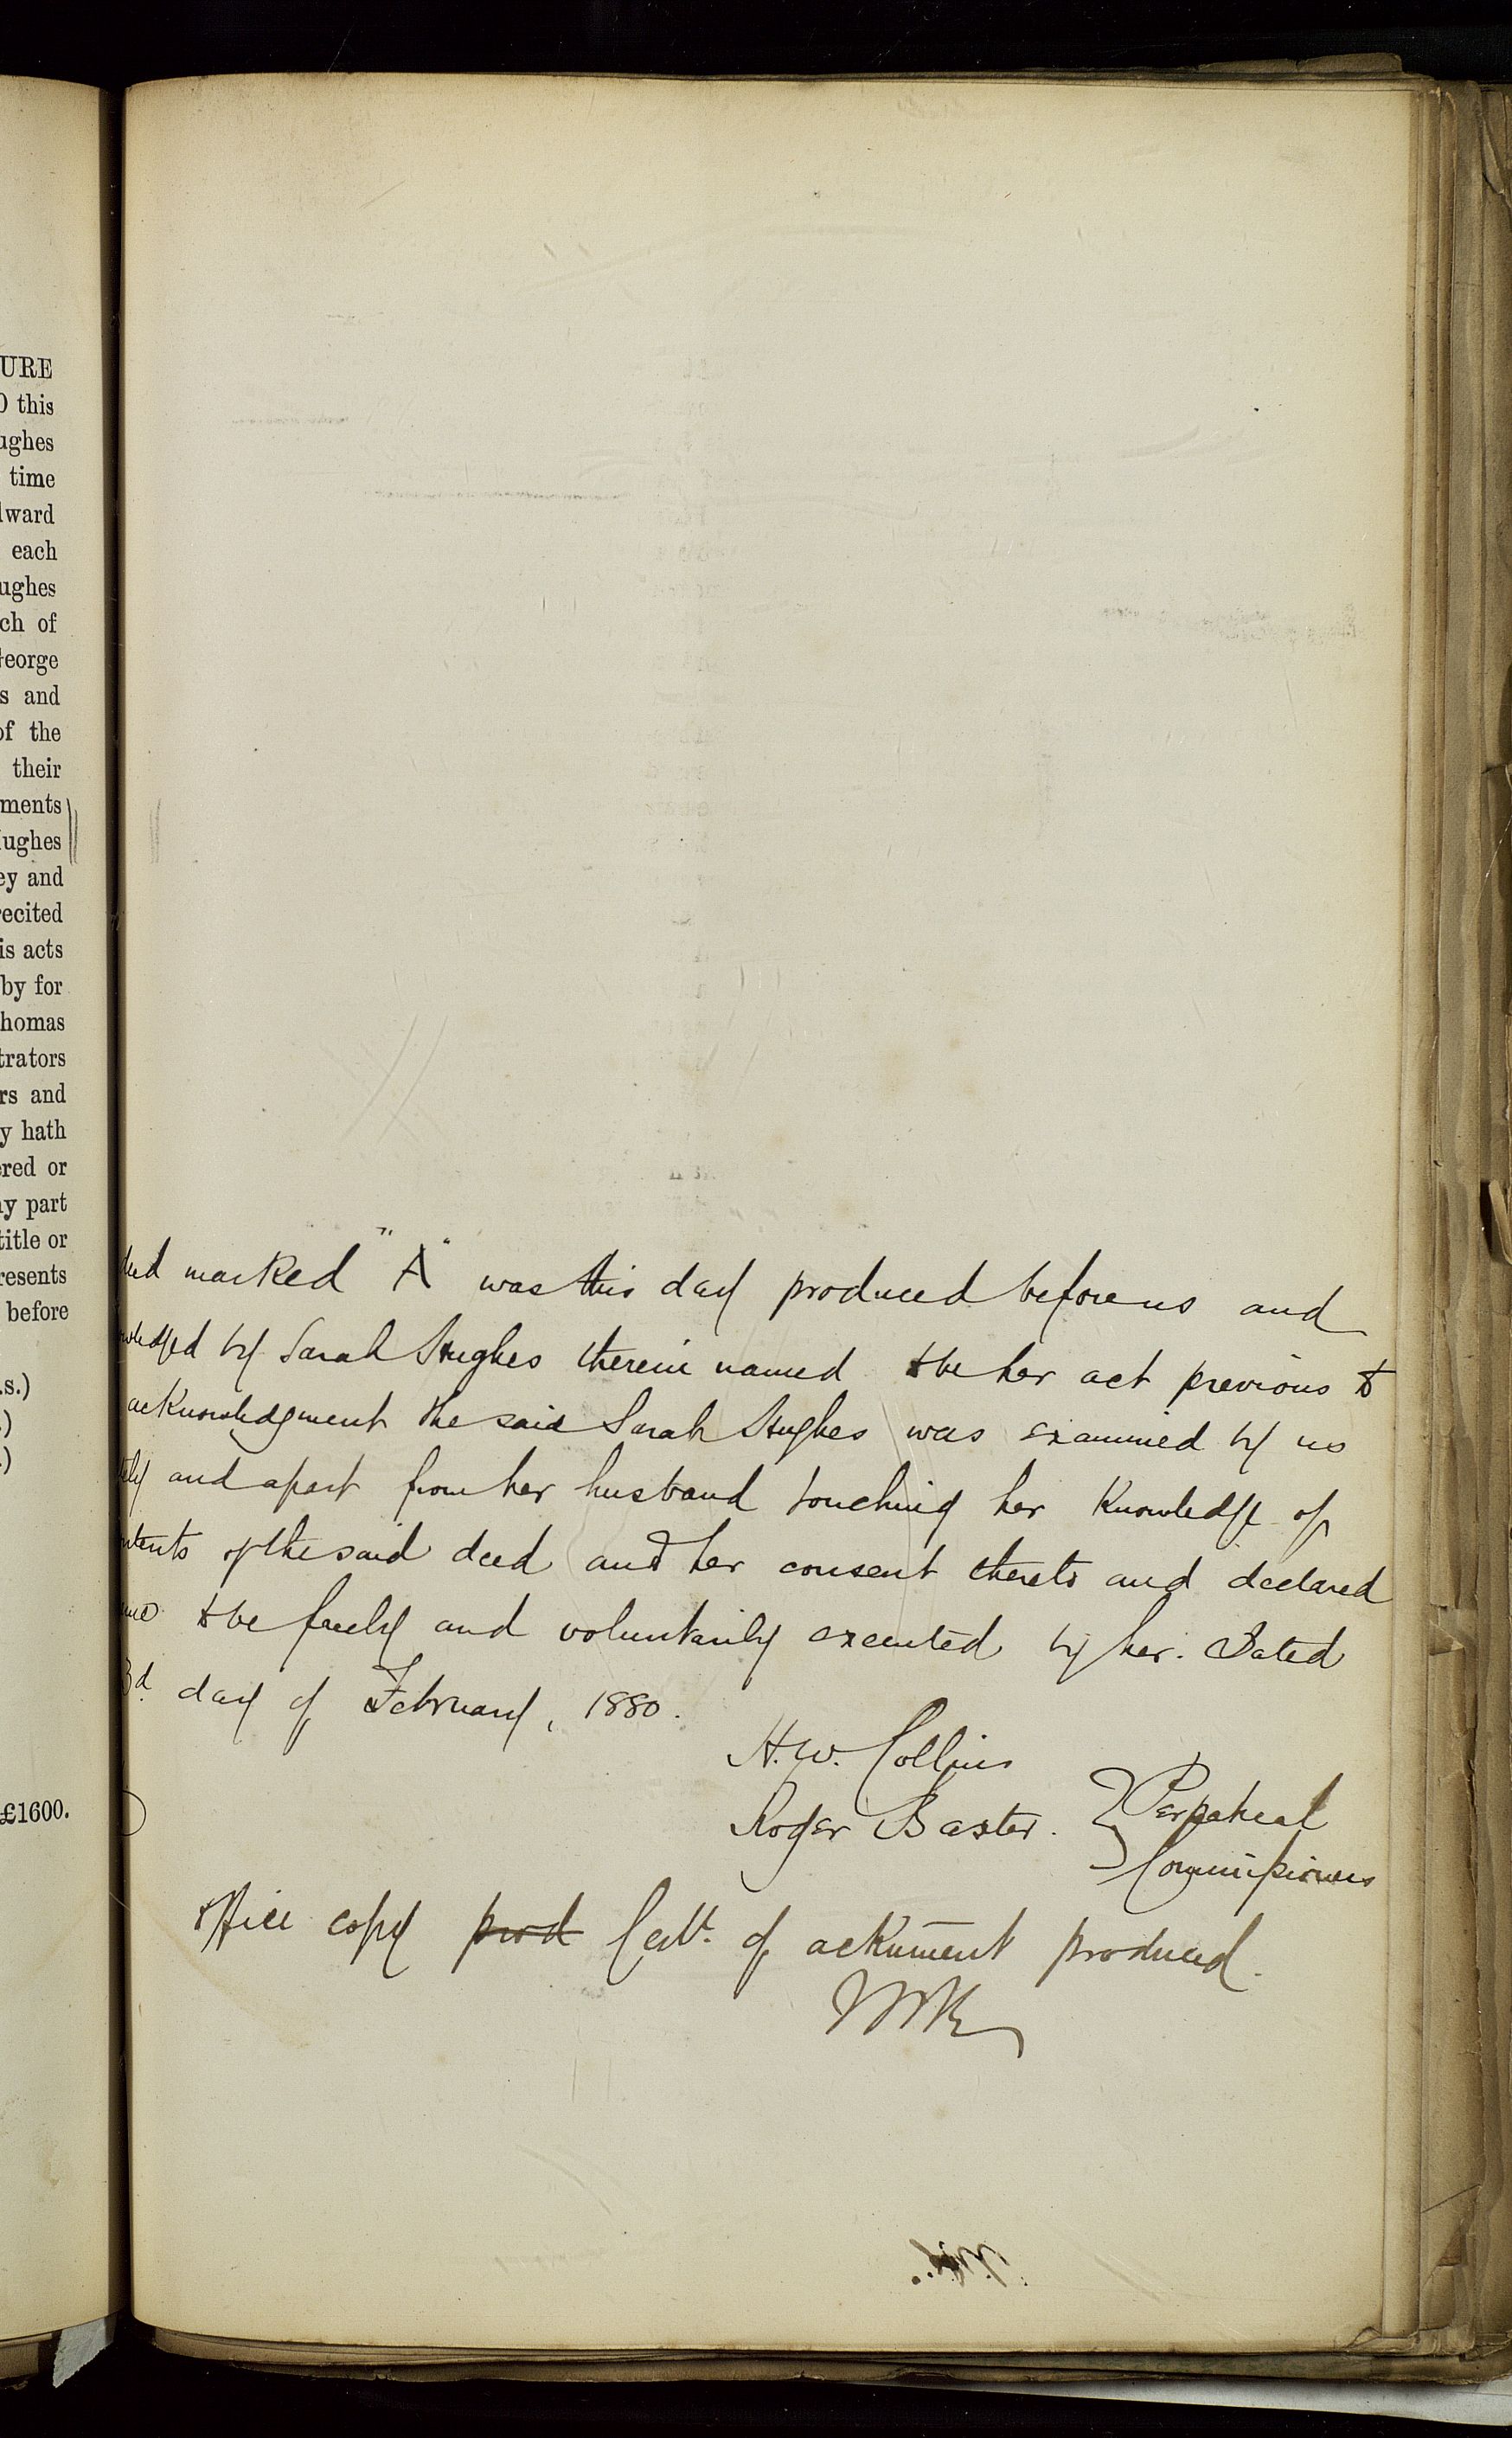 URE
O this
ughes
time
lward
each
ughes
ch of
George
s and
of the
their
ments
ughes
ey and
recited
is acts
by for
homas
trators
rs and
y hath
ered or
ny part
title or
resents
before
.s.)
.)
.)
£1600.
deed marked "A" was this day produced before us and
owledged by Sarah Hughes therein named to be her act previous to
acknowledgment the said Sarah Hughes was examined by us
tely and apart from her husband touching her knowledge of
ntents of the said deed and her consent thereto and declared
ame to be freely and voluntarily executed by her. Dated
3d. day of February, 1880.
H. W. Collins
Roger Baxter. } Perpetual
Commissioners
Office copy prod Certt. of acknment produced.